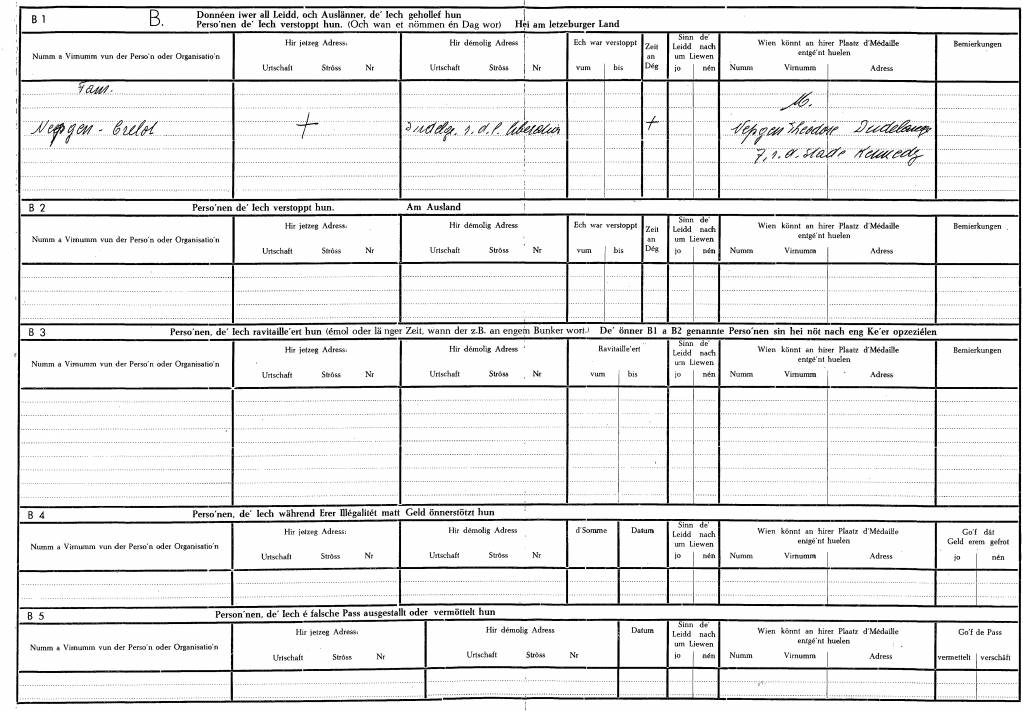 B 1 B. Donnéen iwer all Leidd, och Auslänner, de' Iech gehollef hun
Perso'nen de' Iech verstoppt hun. (Och wan et nömmen én Dag wor) Hei am letzeburger Land
Numm a Virnumm vun der Perso'n oder Organisatio'n
Hir jetzeg Adress:
Urtschaft Ströss Nr
Hir démolig Adress
Urtschaft Ströss Nr
Ech war verstoppt
vum bis
Zeit an Dég
Sinn de' Leidd nach um Liewen
jo nén
Wien könnt an hirer Plaatz d'Médaille entgé'nt huelen
Numm Virnumm Adress
Bemierkungen
Fam.
Nepgen - Crelot + + M.
Nepgen Théodore Dudelange
7, r. d. Stade Kennedy
B 2 Perso'nen de' Iech verstoppt hun. Am Ausland
Numm a Virnumm vun der Perso'n oder Organisatio'n
Hir jetzeg Adress:
Urtschaft Ströss Nr
Hir démolig Adress
Urtschaft Ströss Nr
Ech war verstoppt
vum bis
Zeit an Dég
Sinn de' Leidd nach um Liewen
jo nén
Wien könnt an hirer Plaatz d'Médaille entgé'nt huelen
Numm Virnumm Adress
Bemierkungen
B 3 Perso'nen, de' Iech ravitaille'ert hun (émol oder länger Zeit, wann der z.B. an engem Bunker wort.) De' önner B1 a B2 genannte Perso'nen sin hei nöt nach eng Ke'er opzeziélen
Numm a Virnumm vun der Perso'n oder Organisatio'n
Hir jetzeg Adress:
Urtschaft Ströss Nr
Hir démolig Adress
Urtschaft Ströss Nr
Ravitaille'ert
vum bis
Sinn de' Leidd nach um Liewen
jo nén
Wien könnt an hirer Plaatz d'Médaille entgé'nt huelen
Numm Virnumm Adress
Bemierkungen
B 4 Perso'nen, de' Iech während Erer Illégalitét matt Geld önnerstötzt hun
Numm a Virnumm vun der Perso'n oder Organisatio'n
Hir jetzeg Adress:
Urtschaft Ströss Nr
Hir démolig Adress
Urtschaft Ströss Nr
d'Somme
Datum
Sinn de' Leidd nach um Liewen
jo nén
Wien könnt an hirer Plaatz d'Médaille entgé'nt huelen
Numm Virnumm Adress
Go'f dát Geld erem gefrot
jo nén
B 5 Person'nen, de' Iech é falsche Pass ausgestallt oder vermöttelt hun
Numm a Virnumm vun der Perso'n oder Organisatio'n
Hir jetzeg Adress:
Urtschaft Ströss Nr
Hir démolig Adress
Urtschaft Ströss Nr
Datum
Sinn de' Leidd nach um Liewen
jo nén
Wien könnt an hirer Plaatz d'Médaille entgé'nt huelen
Numm Virnumm Adress
Go'f de Pass
vermettelt verschâft